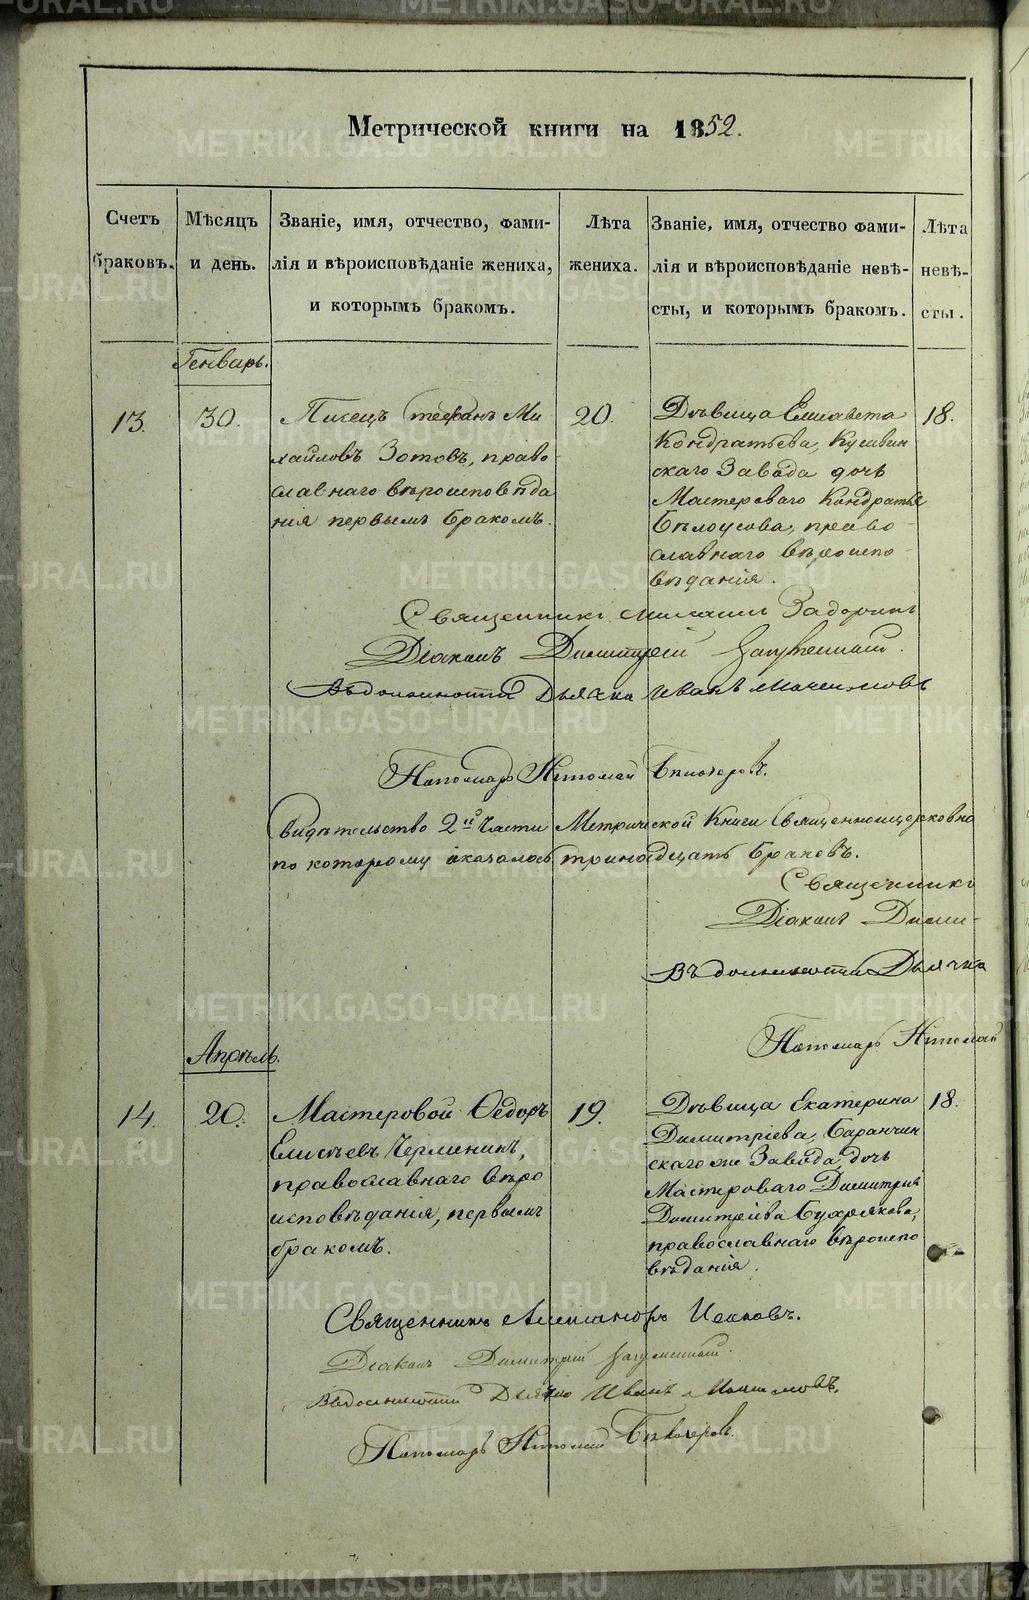 Метрической книги на 1852.
Счетъ браковъ.
Мѣсяцъ и день.
Званіе, имя, отчество, фами-
лія и вѣроисповѣданіе жениха,
и которымъ бракомъ.
Лѣта жениха.
Званіе, имя, отчество фами-
лія и вѣроисповѣданіе невѣ-
сты, и которымъ бракомъ.
Лѣта невѣ-
сты.
Генварь.
13.
30.
Писецъ Стефанъ Ми
хайловъ Зотовъ, право
славнаго вѣроисповѣда
нія первымъ бракомъ.
20.
Дѣвица Елисавета
Кондратьева, Кушвин
скаго Завода дочь
Мастероваго Кондратья
Бѣлоусова, право-
славнаго вѣроиспо-
вѣданія.
18.
Священникъ Михаилъ Задоринъ
Діаконъ Димитрій
Въ должности Дьячка Иванъ Максимовъ
Пономарь Николай
Свидѣтельство 2й части Метрической Книги Священноцерковно
по которому оказалось тринадцать браковъ.
Священникъ
Діаконъ Дими-
Въ должности Дьячка
Пономарь Николай
Апрѣль.
14.
20.
Мастеровой Ѳедоръ
Елисѣевъ Черменинъ,
православнаго вѣро
исповѣданія, первымъ
бракомъ.
19.
Дѣвица Екатерина
Димитріева, Баранчин
скаго же Завода, дочь
Мастероваго Димитрія
Димитріева Сухрякова,
православнаго вѣроиспо
вѣданія.
18.
Священникъ Александръ Ионовъ.
Діаконъ Димитрій
Въ должности Дьячка Иванъ Максимовъ.
Пономарь Николай
METRIKI.GASO-URAL.RU